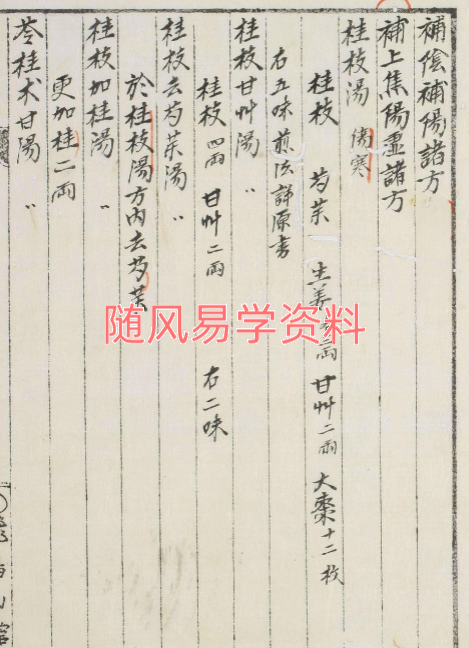 補陰補陽諸方
補上焦陽虛諸方
桂枝湯 傷寒
桂枝 芍藥 生姜 二兩 甘艸二兩 大棗十二枚
右五味煎法詳原書
桂枝甘艸湯 〃
桂枝四兩 甘艸二兩 右二味
桂枝去芍藥湯 〃
於桂枝湯方內去芍藥
桂枝加桂湯 〃
更加桂二兩
苓桂术甘湯 〃
随风易学资料